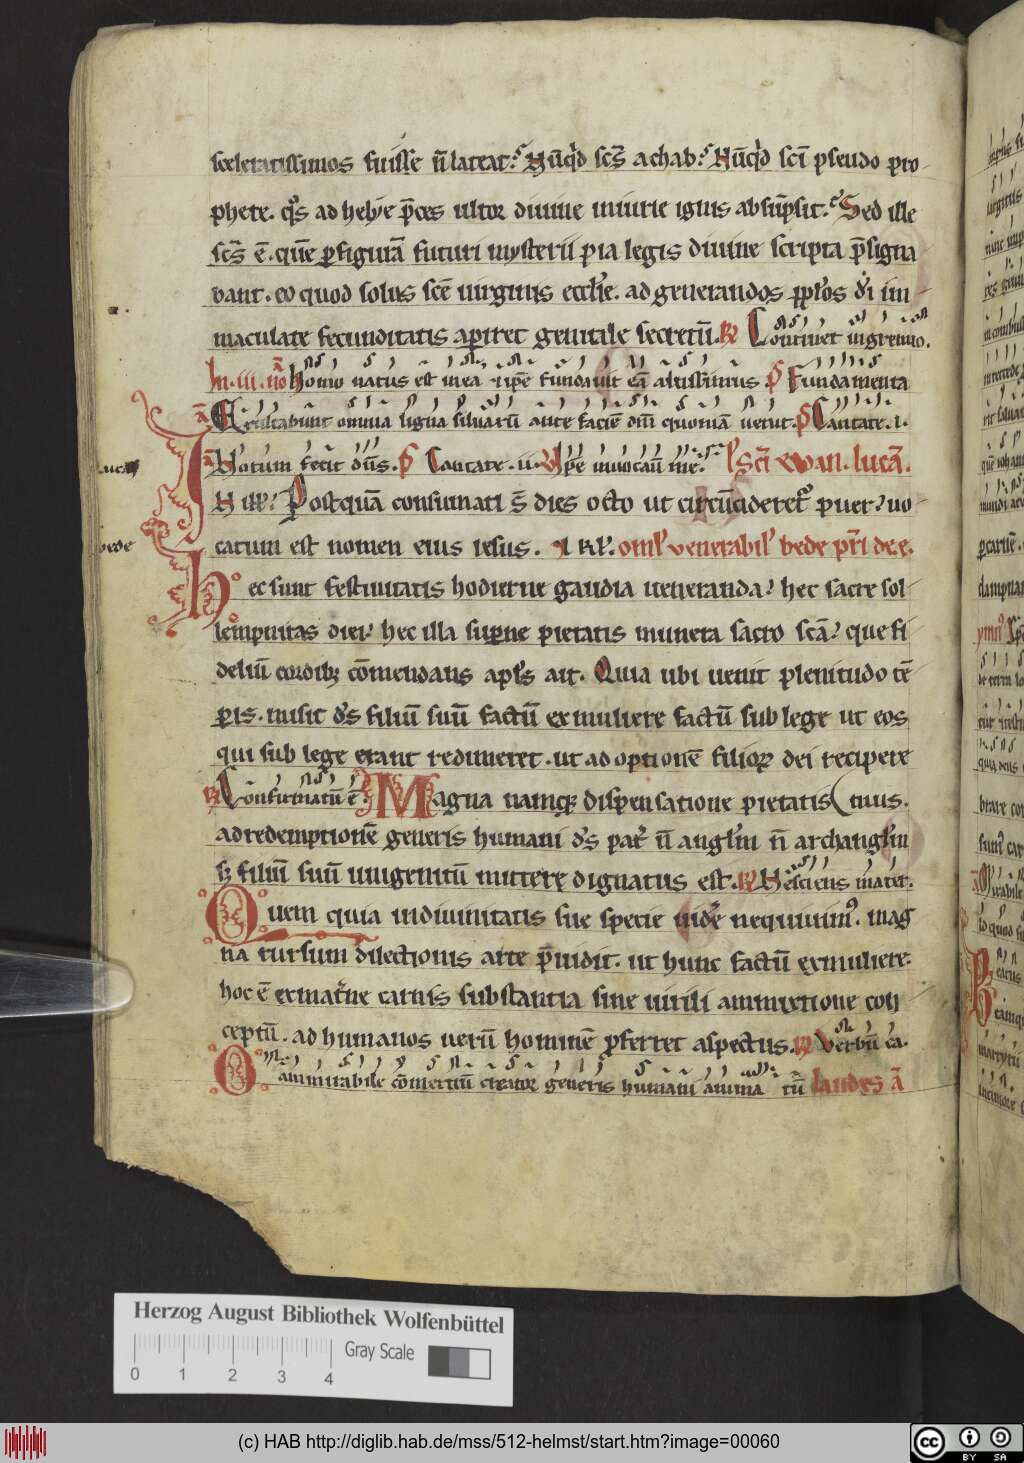 sceleratissimos fuisse n̄ lateat. Nūqͥd scs̄ achab. Nūqͥd sci᷑ pseudo pro-
phete. qͦs ad helye p̄ces ultor diuine iniurie ignis absūpsit. Sed ille
scs̄ ē. quē p̱figurā futuri mysterii pia legis diuine scripta p̄signa
bant. eo quod solus scē uirginis eccl'ie. ad generandos ppl'os di᷑ im
maculate fecunditatis apiret genitale secretū. R̷ Continet in gremio.
In .iii. no Homo natus est in ea ipse fundauit eā altissimus P̄ Fundamenta
ā Exultabunt omnia ligna siluarū ante faciē dn̄i quoniā uenit. P̄ Cantate .i.
ā Notum fecit dn̄s. P̄ Cantate .ii. V̷ Ipse inuocauit me. S sci᷑ ewan. lucā.
IN ill'. Postquā consumati s̄ dies octo ut circūcideretͬ puer. uo
catum est nomen eius iesus. & Rl'. oml' venerabil' bede pr̄i de e.
Hec sunt festiuitatis hodierne gaudia ueneranda. hec sacre sol
lempnitas diei. hec illa supne pietatis munera sacro scā. que fi
deliū cordibꝫ cōmendans apl's ait. Quia ubi uenit plenitudo tē
p̱is. misit ds̄ filiū suū factū ex muliere factū sub lege ut eos
qui sub lege erant redimeret. ut adoptionē filiorꝫ dei recipere
R̷ Confirmatū ē. Magna namqꝫ dispensatione pietatis (mus.
ad redemptionē generis humani ds̄ pat᷑ n̄ angl'm n̄ archangl'm
sꝫ filiū suū unigenitū mittere dignatus est. R̷ Nesciens mater.
Quem quia in diuinitatis sue specie uide᷑ nequiuimꝰ. mag
na rursum dilectionis arte p̄uidit. ut hunc factū ex muliere.
hoc ē ex mat᷑ne carnis substantia sine uirili ammixtione con
ceptū. ad humanos uerū hominē p̱ferret aspectus. R̷ Verbū ca.
O ammirabile cōmertiū creator generis humani anima tū laudes ā
lucas
bede
Herzog August Bibliothek Wolfenbüttel
Gray Scale
0 1 2 3 4
(c) HAB http://diglib.hab.de/mss/512-helmst/start.htm?image=00060
cc BY SA